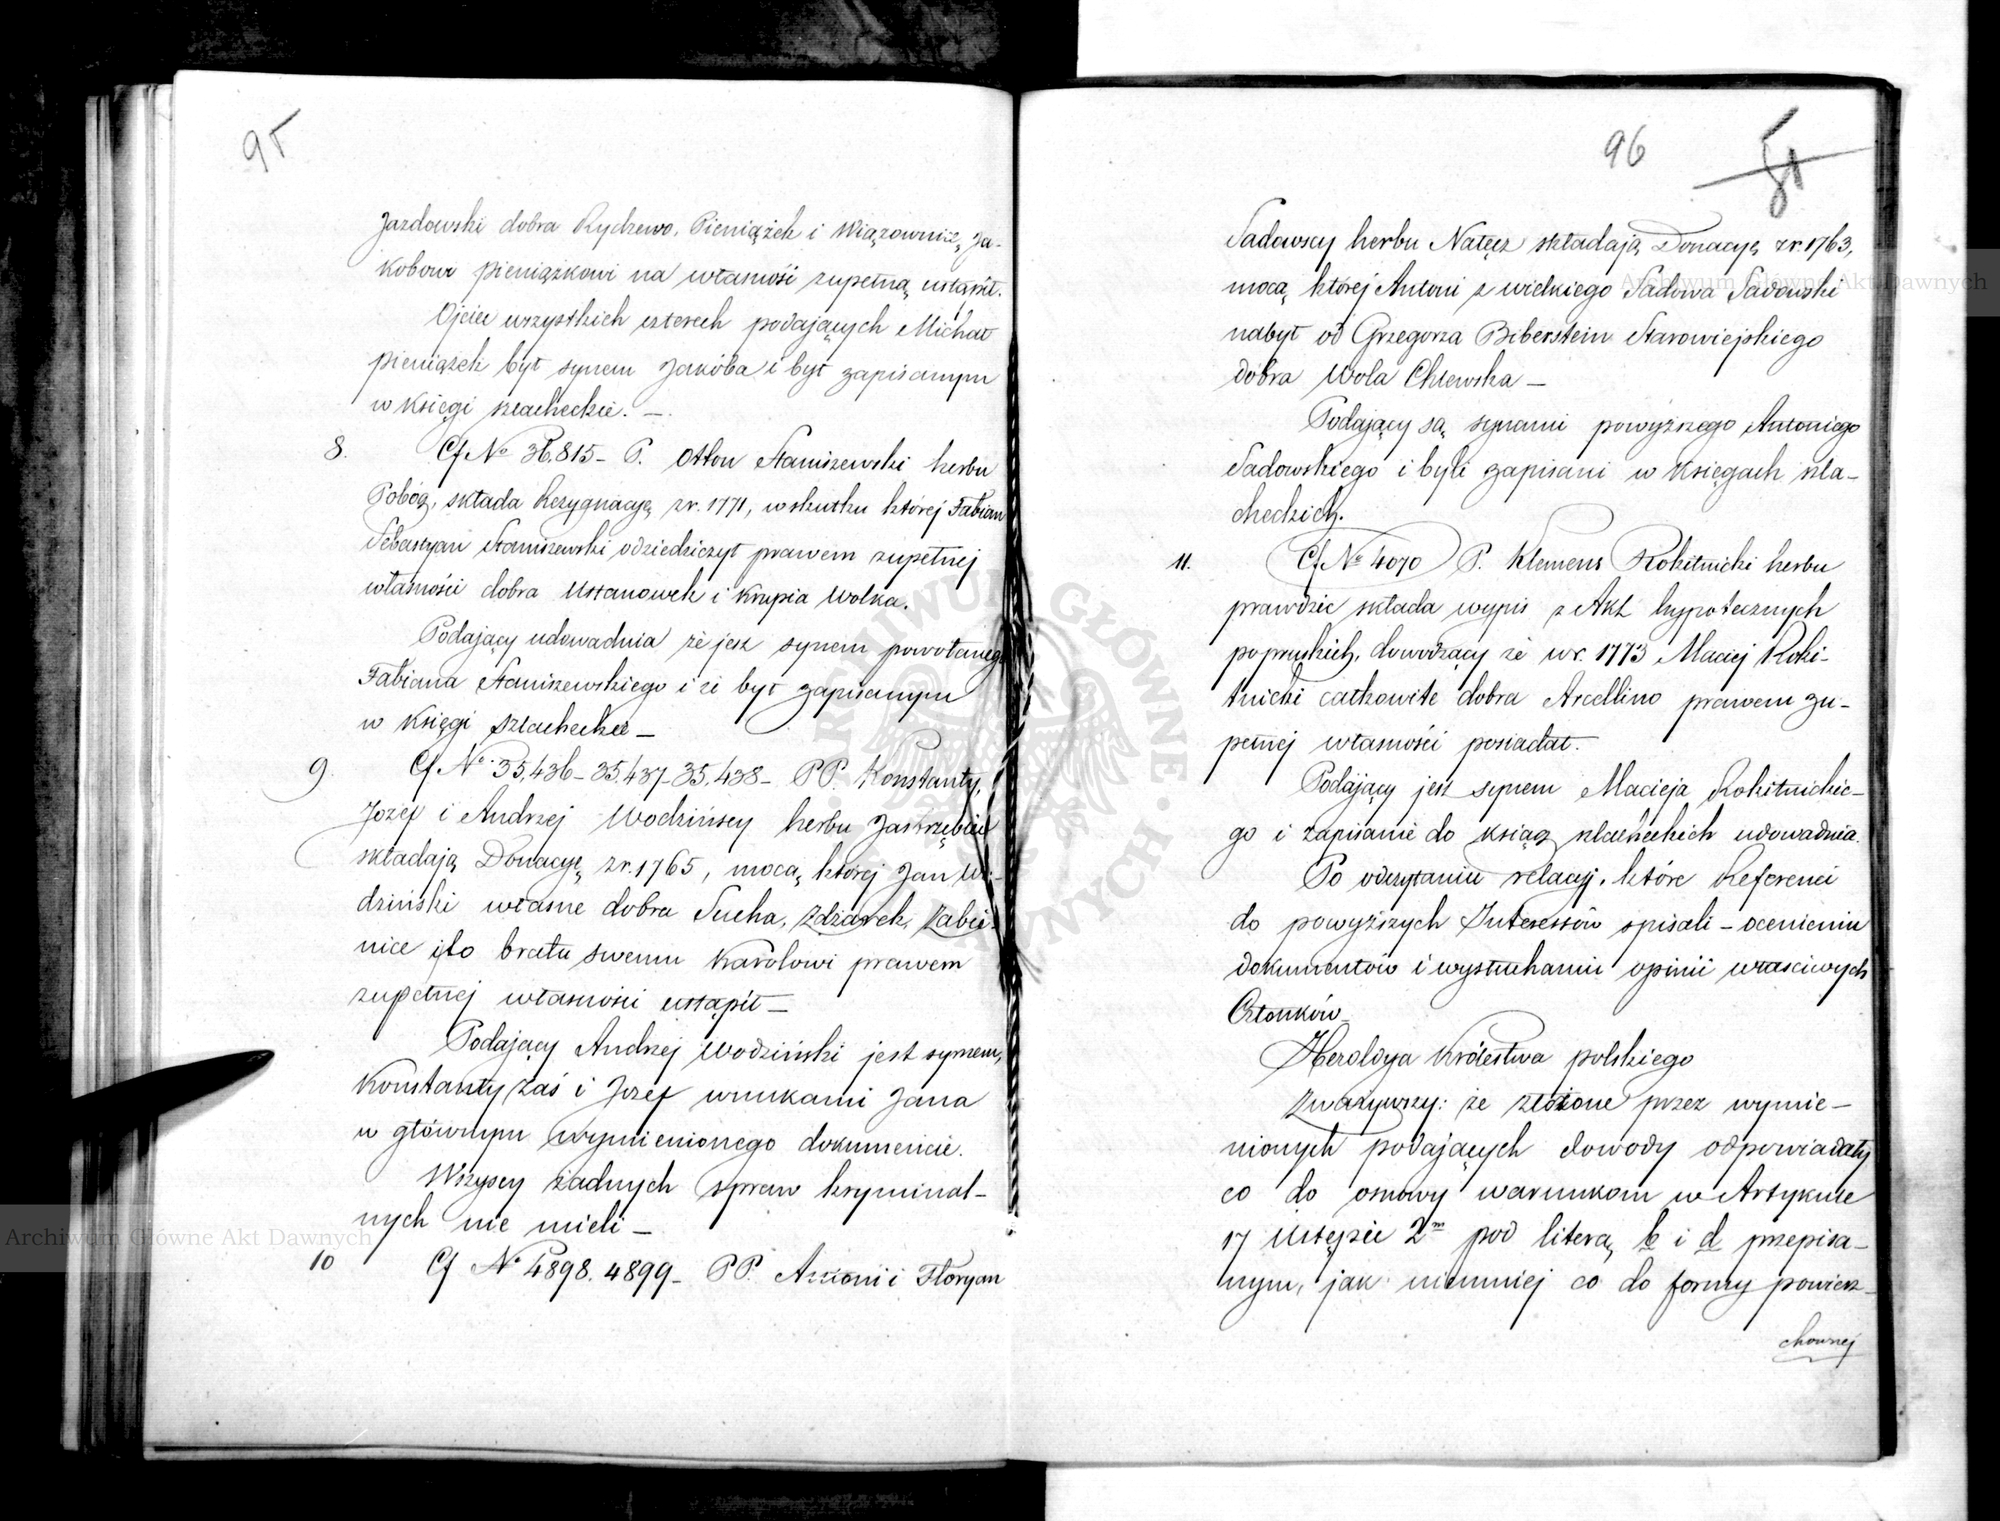 95
Jazdowski dobra Rydzewo, Pieniążek i Wiązownicę, Ja-
kobowi Pieniążkowi na własność zupełną ustąpił.
Ojciec wszystkich czterech podających Michał
Pieniążek był synem Jakóba i był zapisanym
w Księgi szlacheckie. —
8. Cf No 36,815 – P. Otton Staniszewski herbu
Pobóg, składa Rezygnacyę z r. 1771, wskutku której Fabian
Sebastyan Staniszewski odziedziczył prawem zupełnej
własności dobra Ustanowek i Krupia Wolka.
Podający udowadnia że jest synem powołanego
Fabiana Staniszewskiego i że był zapisanym
w Księgi szlacheckie —
9. Cf No 35,436 – 35,437 – 35,438 – PP. Konstanty,
Jozef i Andrzej Wodzińscy herbu Jastrzębiec
składają Donacyę z r. 1765, mocą której Jan Wo-
dziński własne dobra Sucha, Zdżarek, Żabie-
nice i to bratu swemu Karolowi prawem
zupełnej własności ustąpił —
Podający Andrzej Wodziński jest synem,
Konstanty zaś i Jozef wnukami Jana
w głównym wymienionego dokumencie.
Wszyscy żadnych spraw kryminal-
nych nie mieli —
10 Cf No 4898. 4899 – PP. Antoni i Floryan
96
51
Sadowscy herbu Nałęcz składają Donacyę z r. 1763,
mocą której Antoni z wielkiego Sadowa Sadowski
nabył od Grzegorza Biberstein Starowiejskiego
dobra Wola Chlewska —
Podający są synami powyższego Antoniego
Sadowskiego i byli zapisani w Księgach szla-
checkich.
11. Cf No 4070 P. Klemens Rokitnicki herbu
prawdzic składa wypis z Akt hypotecznych
popruskich, dowodzący że w r. 1773 Maciej Roki-
tnicki całkowite dobra Arcellino prawem zu-
pełnej własności posiadał.
Podający jest synem Macieja Rokitnickie-
go i zapisanie do ksiąg szlacheckich udowadnia.
Po odczytaniu relacyi, które Referenci
do powyższych Interessów spisali – ocenieniu
dokumentów i wysłuchaniu opinii właściwych
Członków —
Heroldya Królestwa polskiego
Zważywszy: że złożone przez wymie-
nionych podających dowody odpowiadały
co do osnowy warunkom w Artykule
17 Ustępie 2m pod literą b i d przepisa-
nym, jak niemniej co do formy powierz-
chownej
Archiwum Główne Akt Dawnych
Archiwum Główne Akt Dawnych
ARCHIWUM GŁÓWNE AKT DAWNYCH